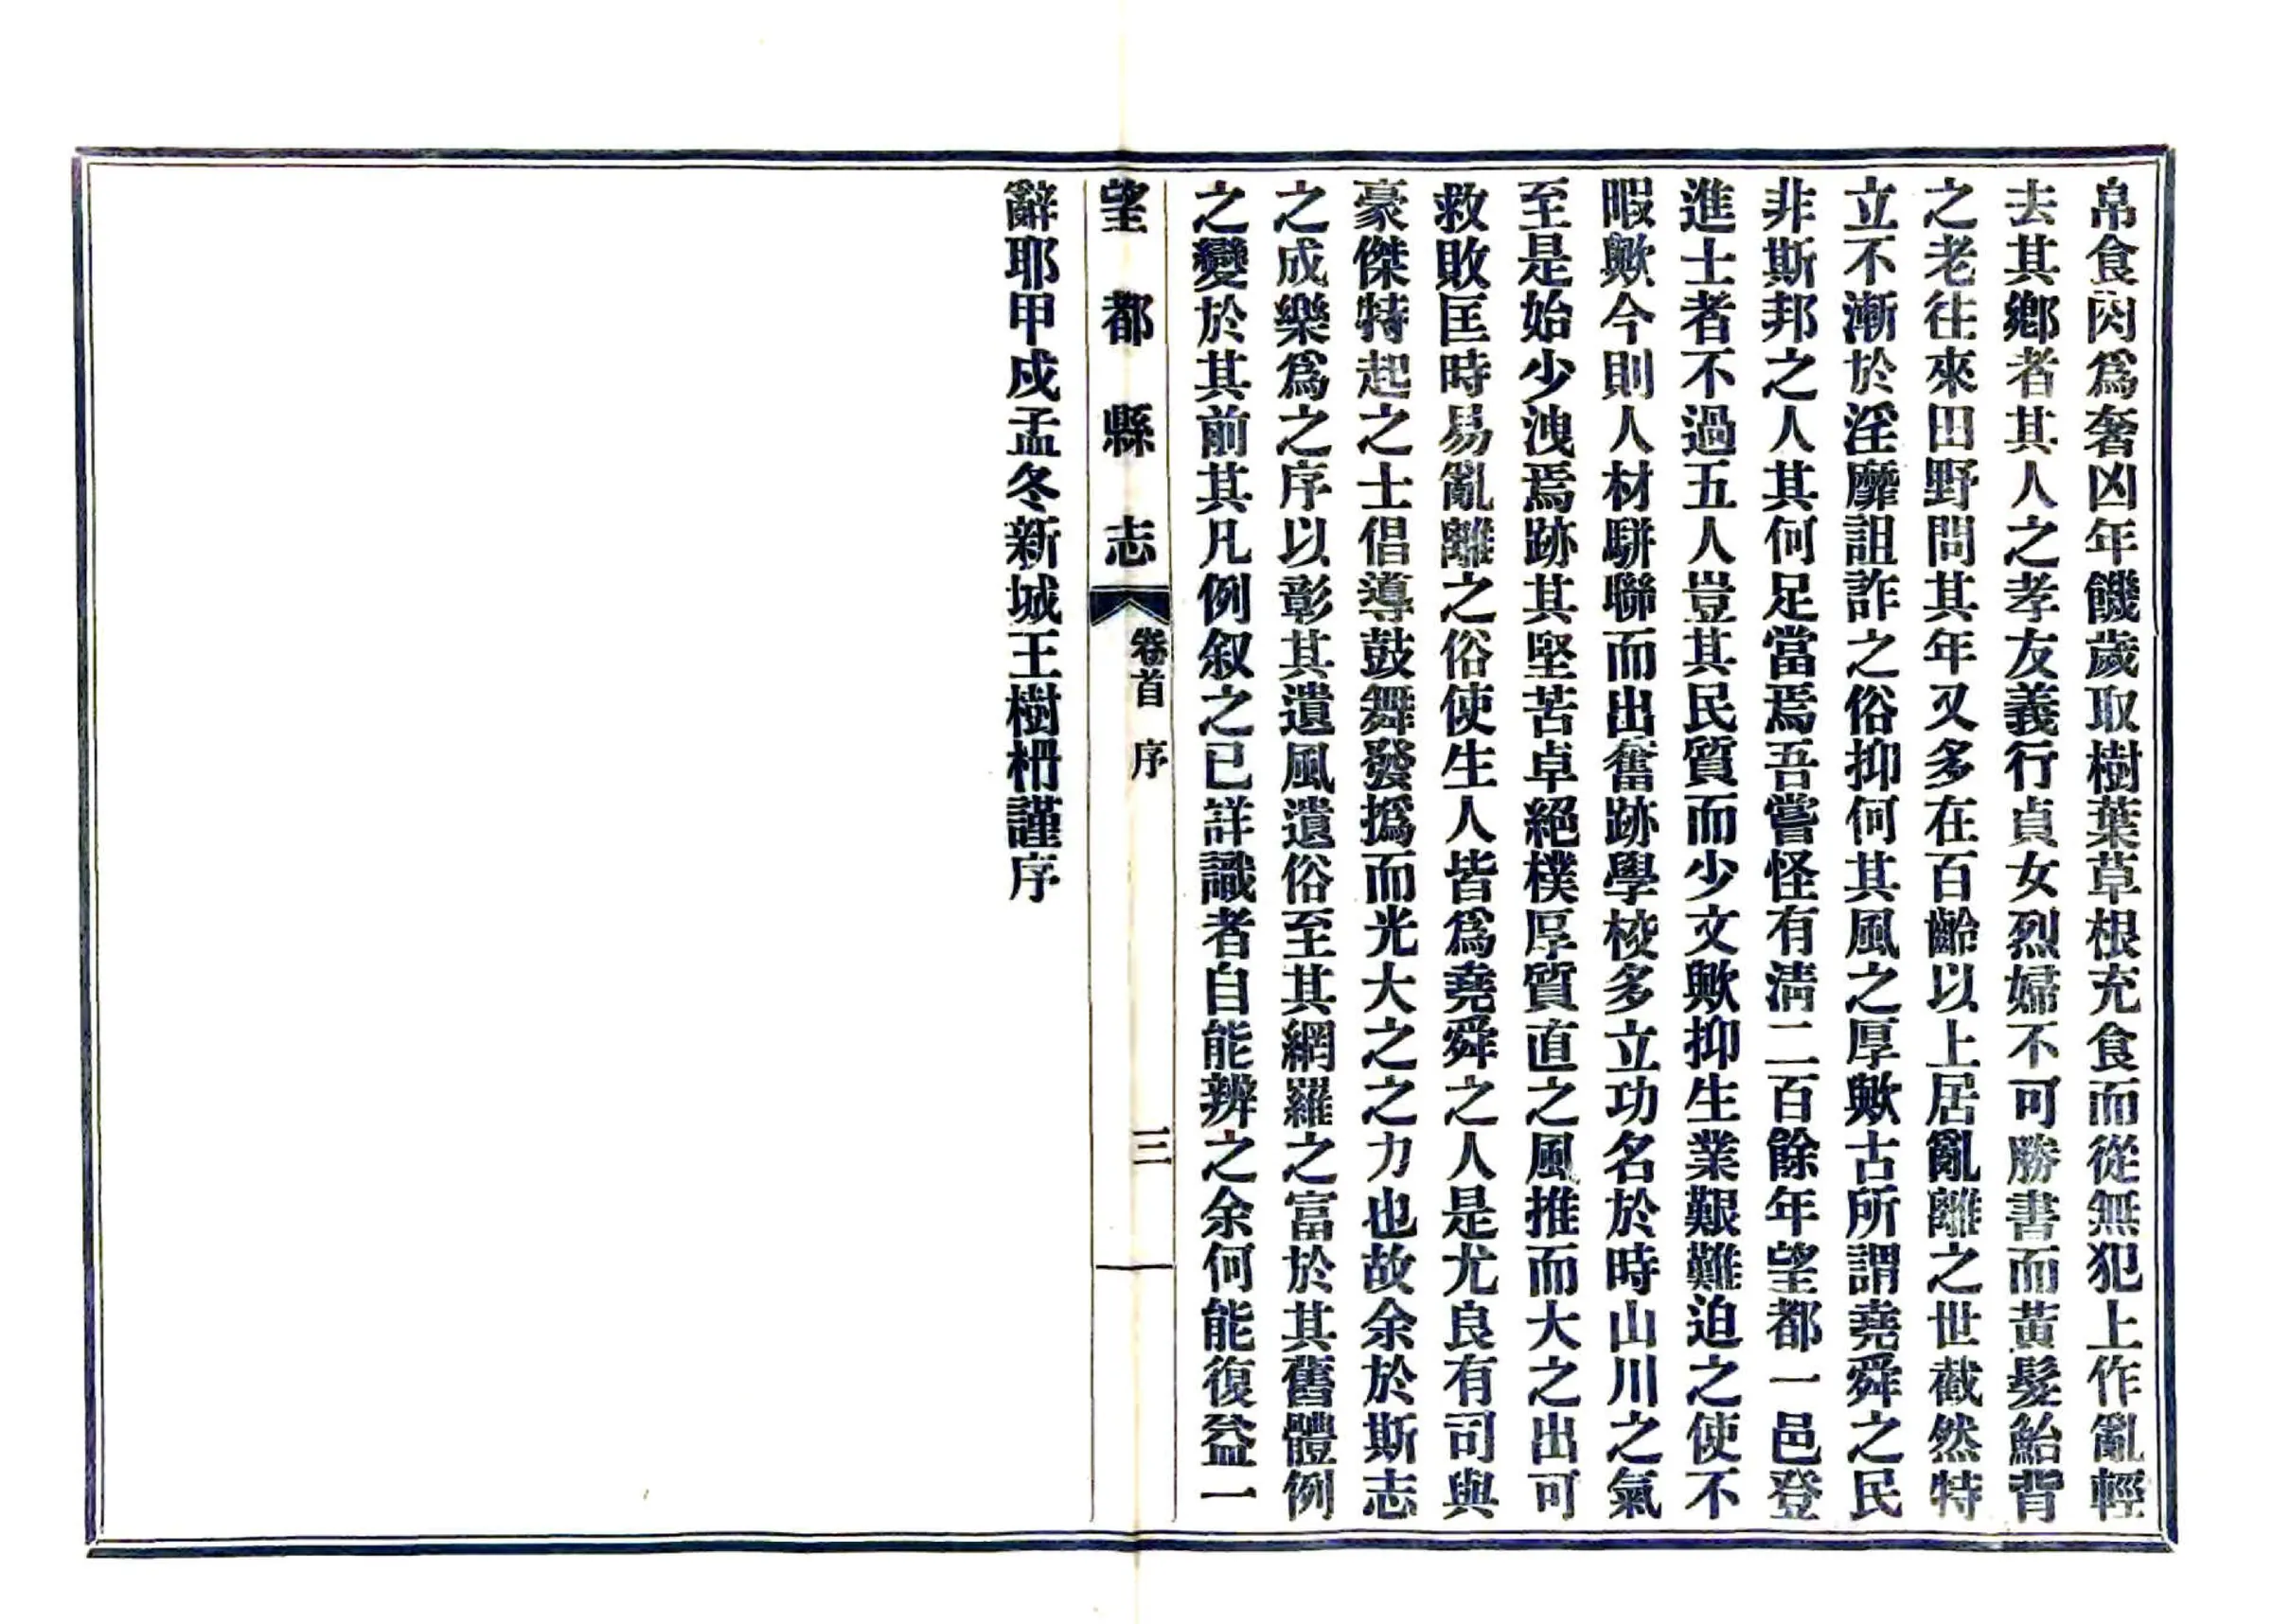 帛食肉爲奢凶年饑歲取樹葉草根充食而從無犯上作亂輕
去其鄉者其人之孝友義行貞女烈婦不可勝書而黃髮鮐背
之老往來田野問其年又多在百齡以上居亂離之世截然特
立不漸於淫靡詛詐之俗抑何其風之厚歟古所謂堯舜之民
非斯邦之人其何足當焉吾嘗怪有淸二百餘年望都一邑登
進士者不過五人豈其民質而少文歟抑生業艱難迫之使不
暇歟今則人材駢聯而出奮跡學校多立功名於時山川之氣
至是始少洩焉跡其堅苦卓絕樸厚質直之風推而大之出可
救敗匡時易亂離之俗使生人皆爲堯舜之人是尤良有司與
豪傑特起之士倡導鼓舞發撝而光大之之力也故余於斯志
之成樂爲之序以彰其遺風遺俗至其網羅之富於其舊體例
之變於其前其凡例叙之已詳識者自能辨之余何能復益一
望都縣志
卷首 序
三
辭耶甲戍孟冬新城王樹枏謹序